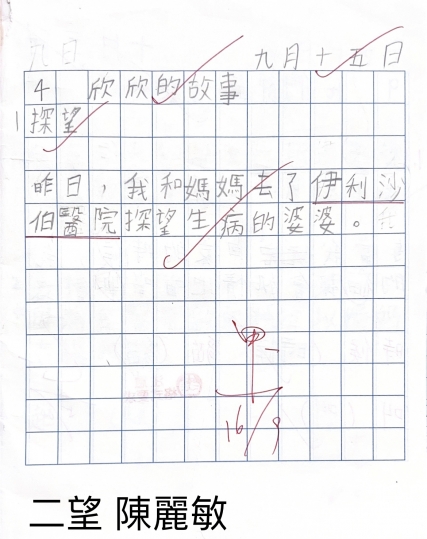 九月十五日
4 欣欣的故事
探望
昨日，我和媽媽去了伊利沙
伯醫院探望生病的婆婆。
甲-
16/9
二望 陳麗敏